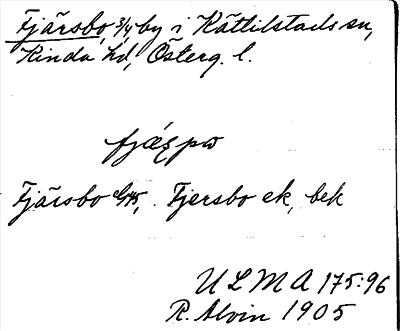 Fjärsbo, 3/4 by i Kättilstads sn,
Kinda hd, Österg. l.
Fjärsbo Fjersbo ek, bek
ULMA 175:96
R. Alvin 1905